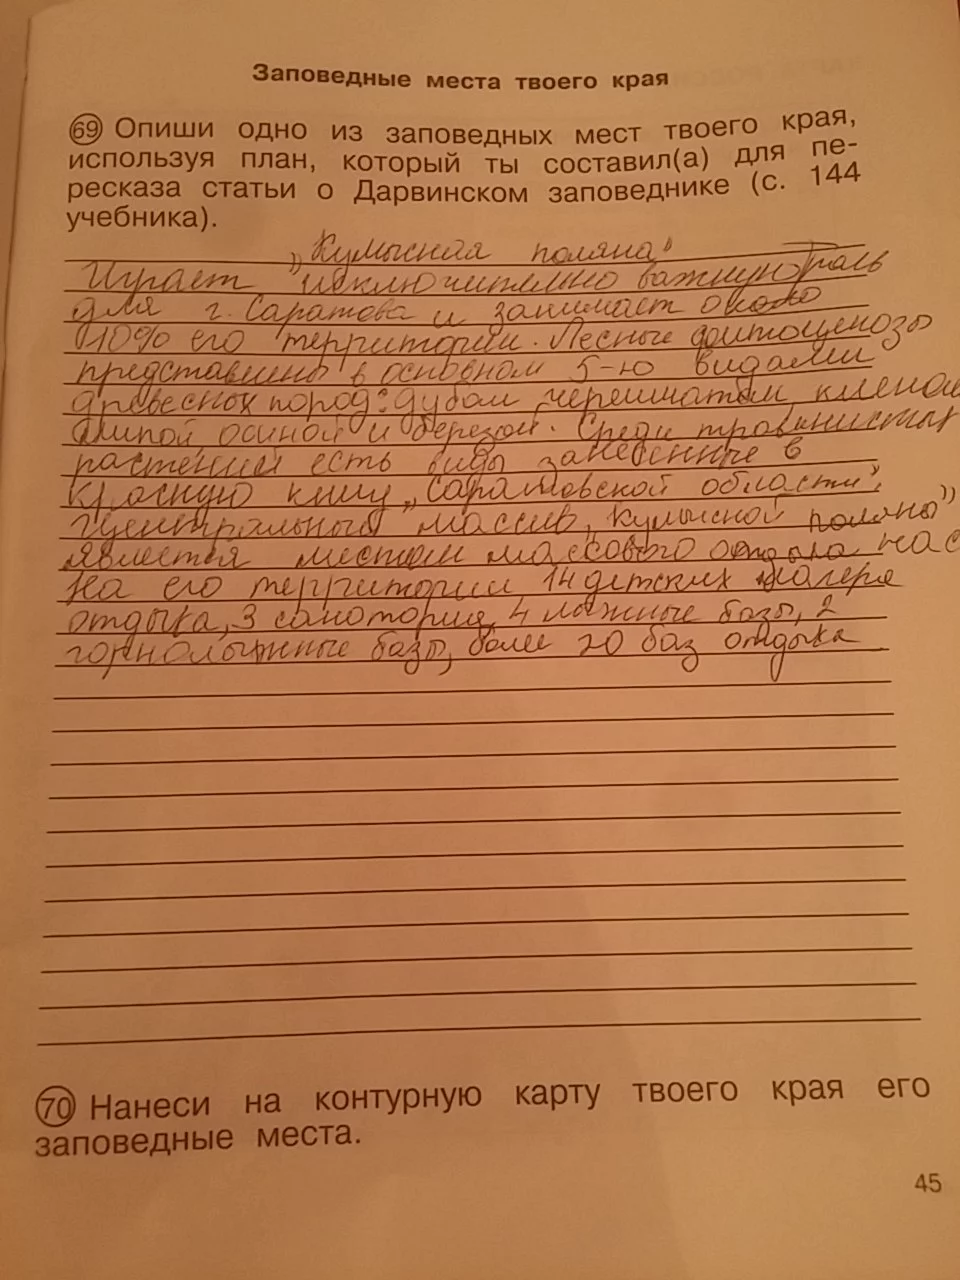 Заповедные места твоего края
69 Опиши одно из заповедных мест твоего края,
используя план, который ты составил(а) для пе-
ресказа статьи о Дарвинском заповеднике (с. 144
учебника).
„Кумысная поляна"
Играет исключительно важную роль
для г. Саратова и занимает около
10% его территории. Лесные фитоценозы
представлены в основном 5-ю видами
древесных пород: дубом черешчатым, кленом
липой осиной и березой. Среди травянистых
растений есть виды занесенные в
красную книгу „Саратовской области".
Центральный массив „Кумысной поляны"
является местом массового отдыха нас
На его территории 14 детских лагеря
отдыха, 3 санатория, 4 лыжные базы, 2
горнолыжные базы, более 20 баз отдыха
70 Нанеси на контурную карту твоего края его
заповедные места.
45